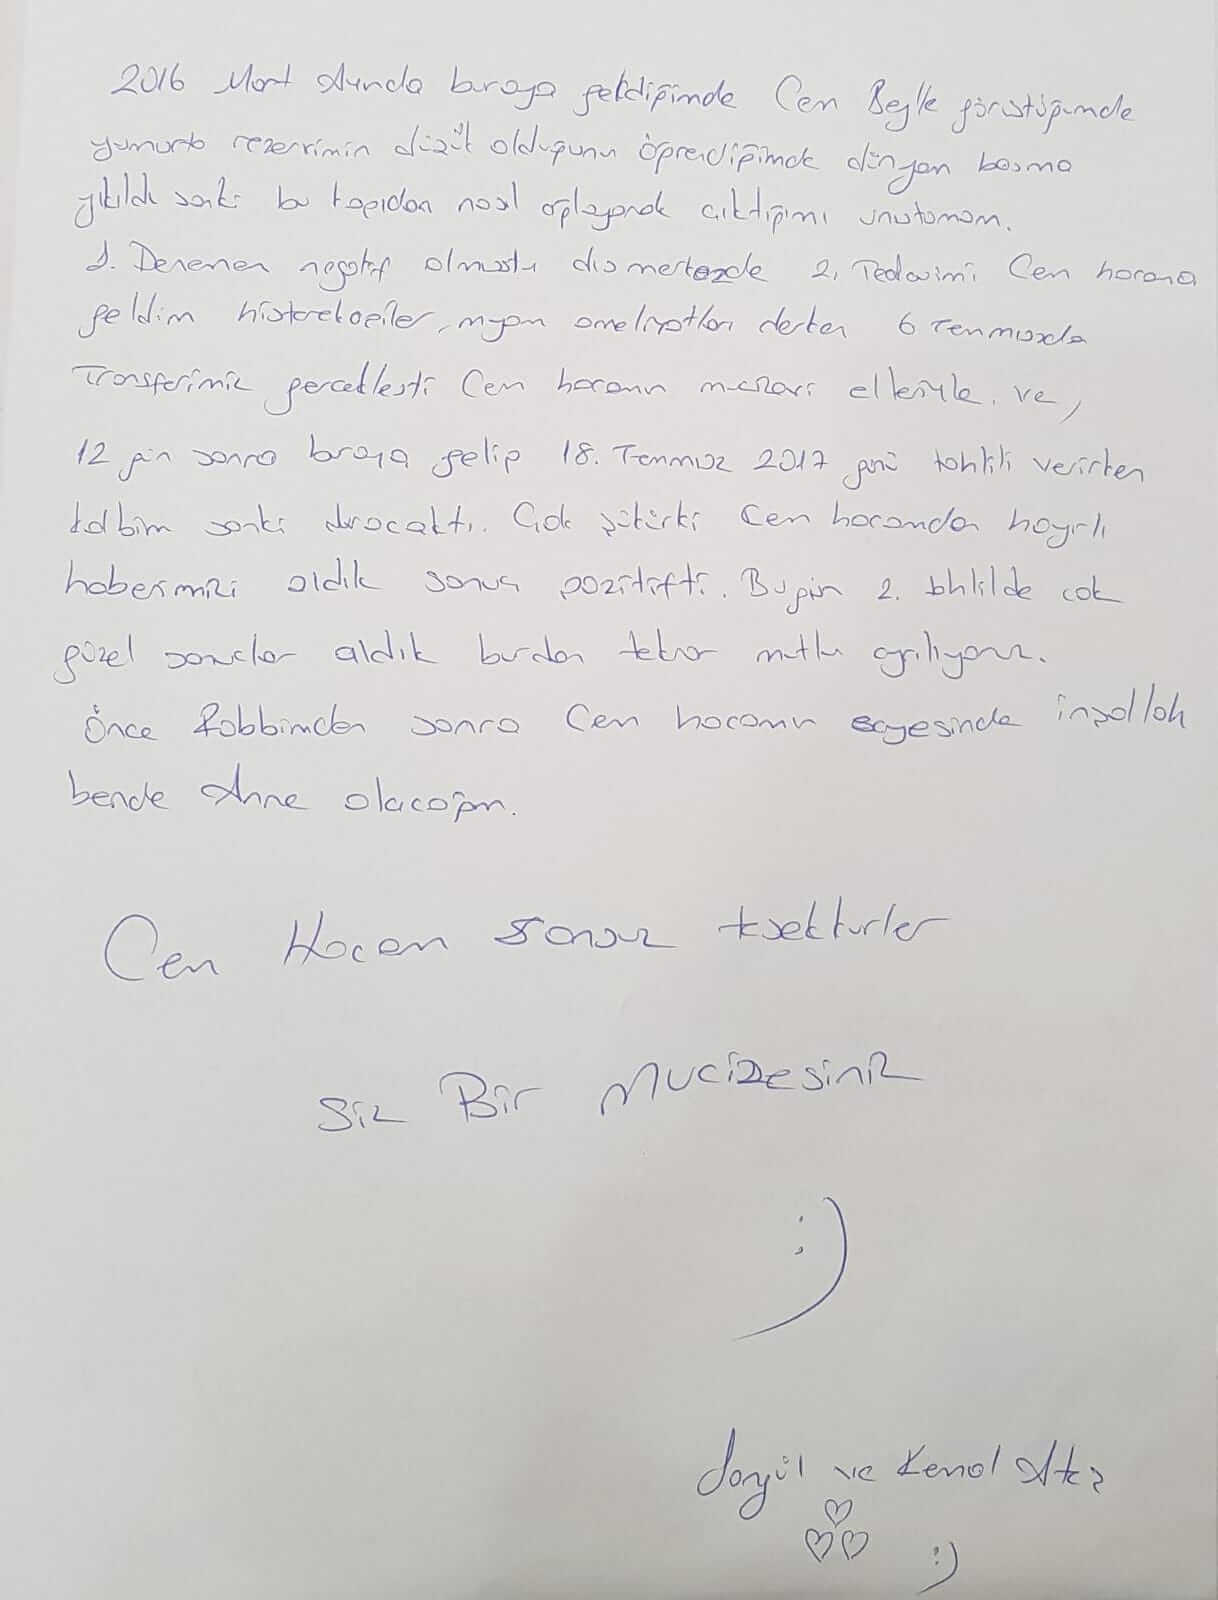 2016 Mart Ayında buraya geldiğimde Cem Beyle görüştüğümde
yumurta rezervimin düşük olduğunu öğrendiğimde dünyam başıma
yıkıldı sanki bu kapıdan nasıl ağlayarak çıktığımı unutamam.
1. Denemem negatif olmuştu dış merkezde 2. Tedavimi Cem hocama
geldim histereskopiler, myom ameliyatları derken 6 Temmuzda
Transferimiz gerçekleşti Cem hocamın mucizevi elleriyle. ve,
12 gün sonra buraya gelip 18. Temmuz 2017 günü tahlili verirken
kalbim sanki duracaktı. Çok şükürki Cem hocamdan hayırlı
haberimizi aldık sonuç pozitifti. Bugün 2. tahlilde çok
güzel sonuçlar aldık burdan tekrar mutlu ayrılıyoruz.
Önce Rabbimden sonra Cem hocamın sayesinde inşallah
bende Anne olacağım.
Cem Hocam sonsuz teşekkürler
Siz Bir Mucizesiniz
:)
Songül ve Kemal
:)